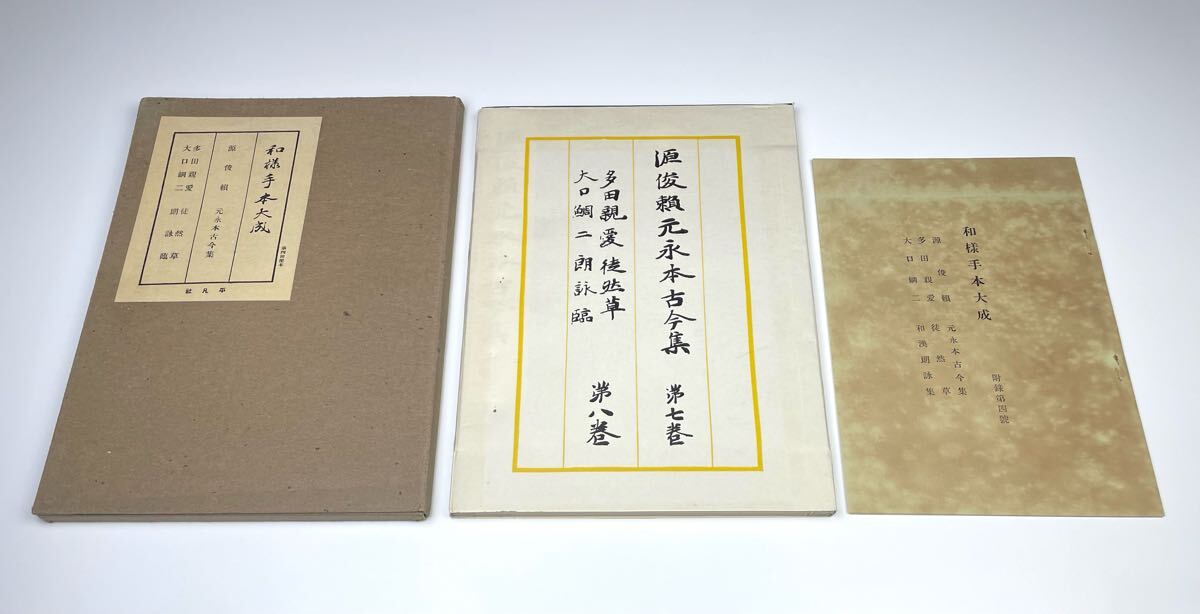 和樣手本大成
第四回配本
源俊賴 元永本古今集
多田親愛 徒然草
大口鯛二 朗詠臨
平凡社
源俊賴元永本古今集 第七卷
多田親愛徒然草
大口鯛二朗詠臨 第八卷
附錄第四號
和樣手本大成
源俊賴 元永本古今集
多田親愛 徒然草
大口鯛二 和漢朗詠集